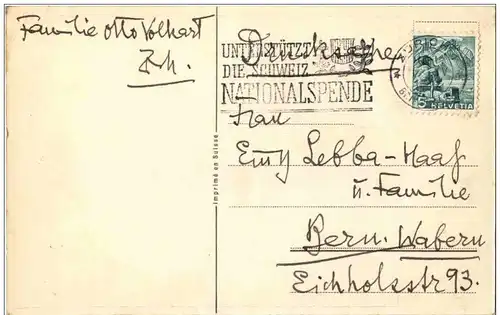 Familie Otto Volkart
Zch.
Drucksache
UNTERSTÜTZT
DIE SCHWEIZ
NATIONALSPENDE
5 HELVETIA
Imprimé en Suisse
Frau
Emy Lebba-Haaf
u. Familie
Bern-Wabern
Eichholzstr 93.